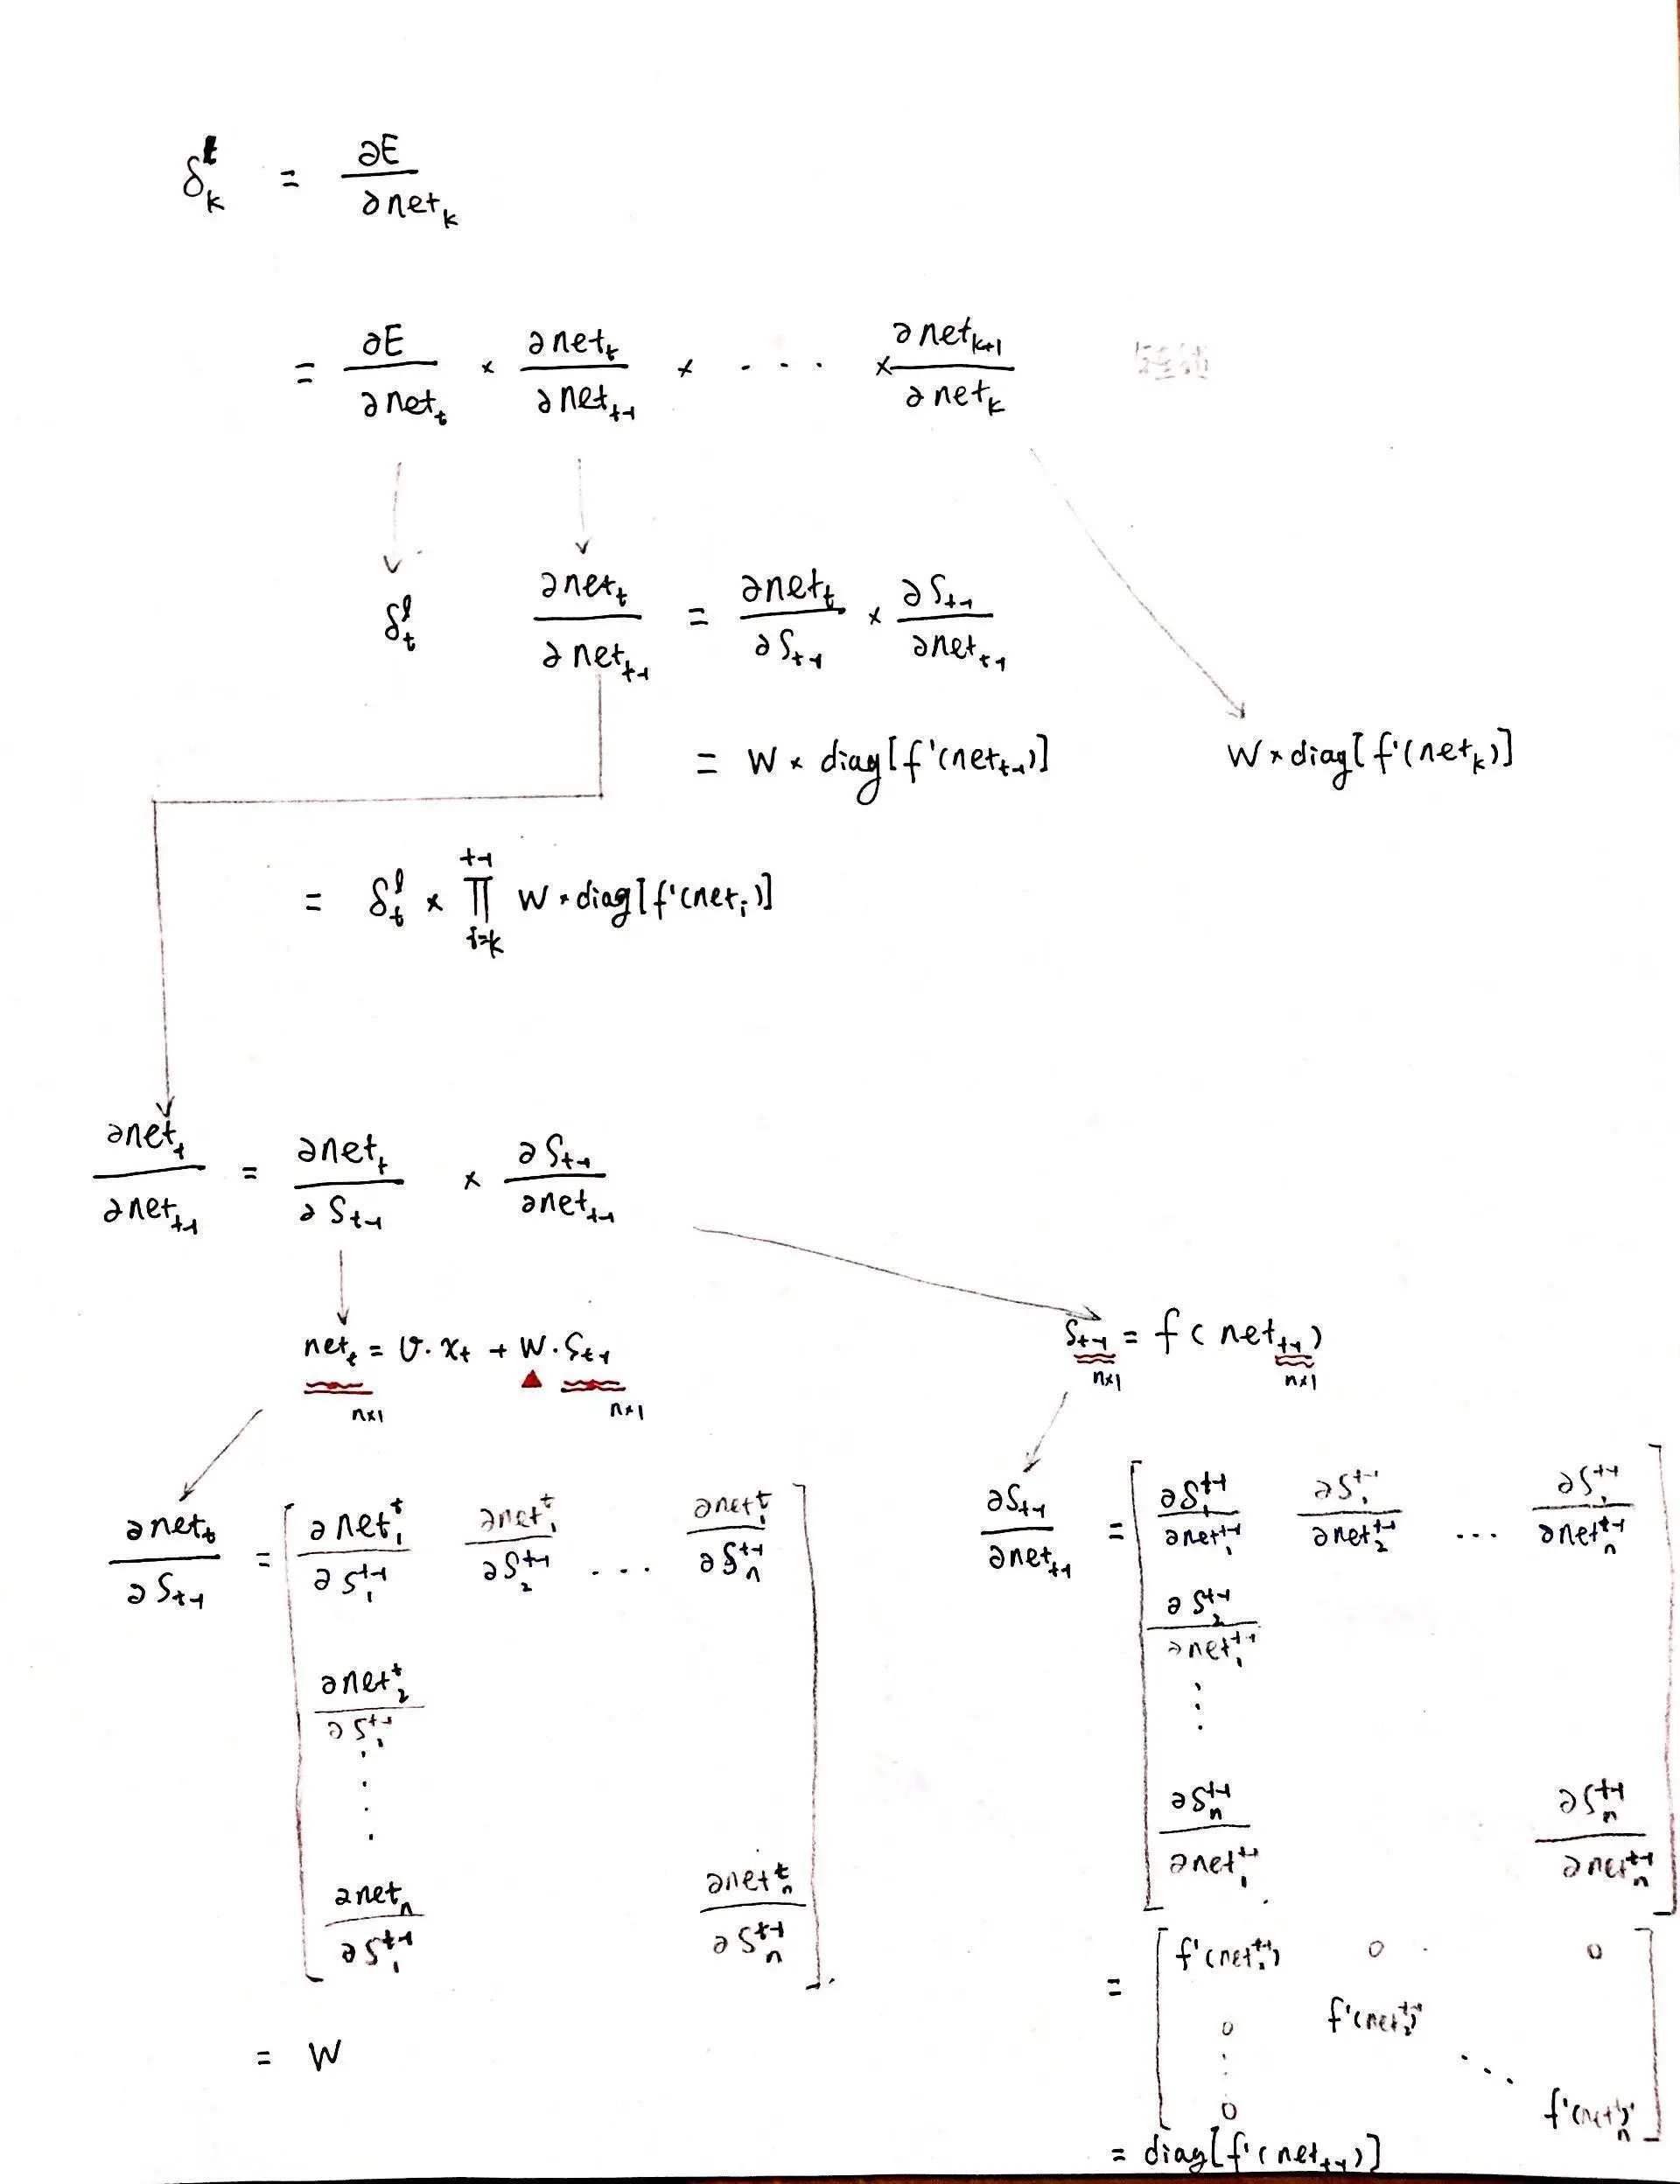 δ_k^t = ∂E / ∂net_k
= ∂E / ∂net_t × ∂net_t / ∂net_{t-1} × ... × ∂net_{k+1} / ∂net_k
δ_t^l
∂net_t / ∂net_{t-1} = ∂net_t / ∂S_{t-1} × ∂S_{t-1} / ∂net_{t-1}
= W × diag[f'(net_{t-1})]
W × diag[f'(net_k)]
= δ_t^l × ∏_{i=k}^{t-1} W × diag[f'(net_i)]
∂net_t / ∂net_{t-1} = ∂net_t / ∂S_{t-1} × ∂S_{t-1} / ∂net_{t-1}
net_t = U · x_t + W · S_{t-1}
n×1 n×1
S_{t-1} = f(net_{t-1})
n×1 n×1
∂net_t / ∂S_{t-1} = [ ∂net_1^t / ∂S_1^{t-1} ∂net_1^t / ∂S_2^{t-1} ... ∂net_1^t / ∂S_n^{t-1}
∂net_2^t / ∂S_1^{t-1}
⋮
∂net_n / ∂S_1^{t-1} ∂net_n^t / ∂S_n^{t-1} ]
= W
∂S_{t-1} / ∂net_{t-1} = [ ∂S_1^{t-1} / ∂net_1^{t-1} ∂S_1^{t-1} / ∂net_2^{t-1} ... ∂S_1^{t-1} / ∂net_n^{t-1}
∂S_2^{t-1} / ∂net_1^{t-1}
⋮
∂S_n^{t-1} / ∂net_1^{t-1} ∂S_n^{t-1} / ∂net_n^{t-1} ]
= [ f'(net_1^{t-1}) 0 · 0
0 f'(net_2^{t-1})
⋮ ⋱
0 f'(net_n^{t-1}) ]
= diag[f'(net_{t-1})]